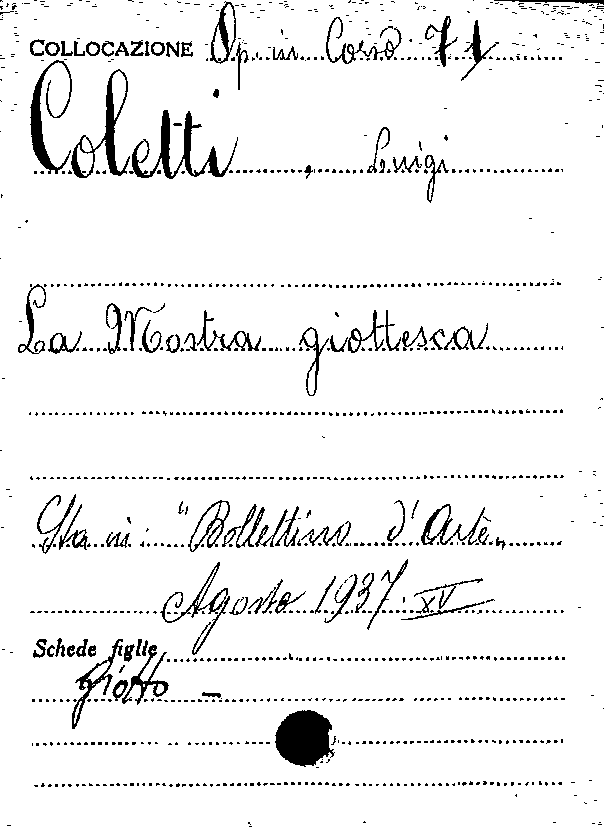 COLLOCAZIONE Op. in Corso 71
Coletti, Luigi
La Mostra giottesca
Sta in: "Bollettino d'Arte"
Agosto 1937. XV
Schede figlie
Giotto -